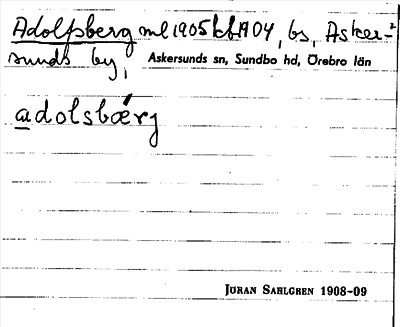 Adolfsberg ml 1905 kbl 1904, bs, Asker-²
sunds by, Askersunds sn, Sundbo hd, Örebro län
adolsbærj
Jöran Sahlgren 1908-09